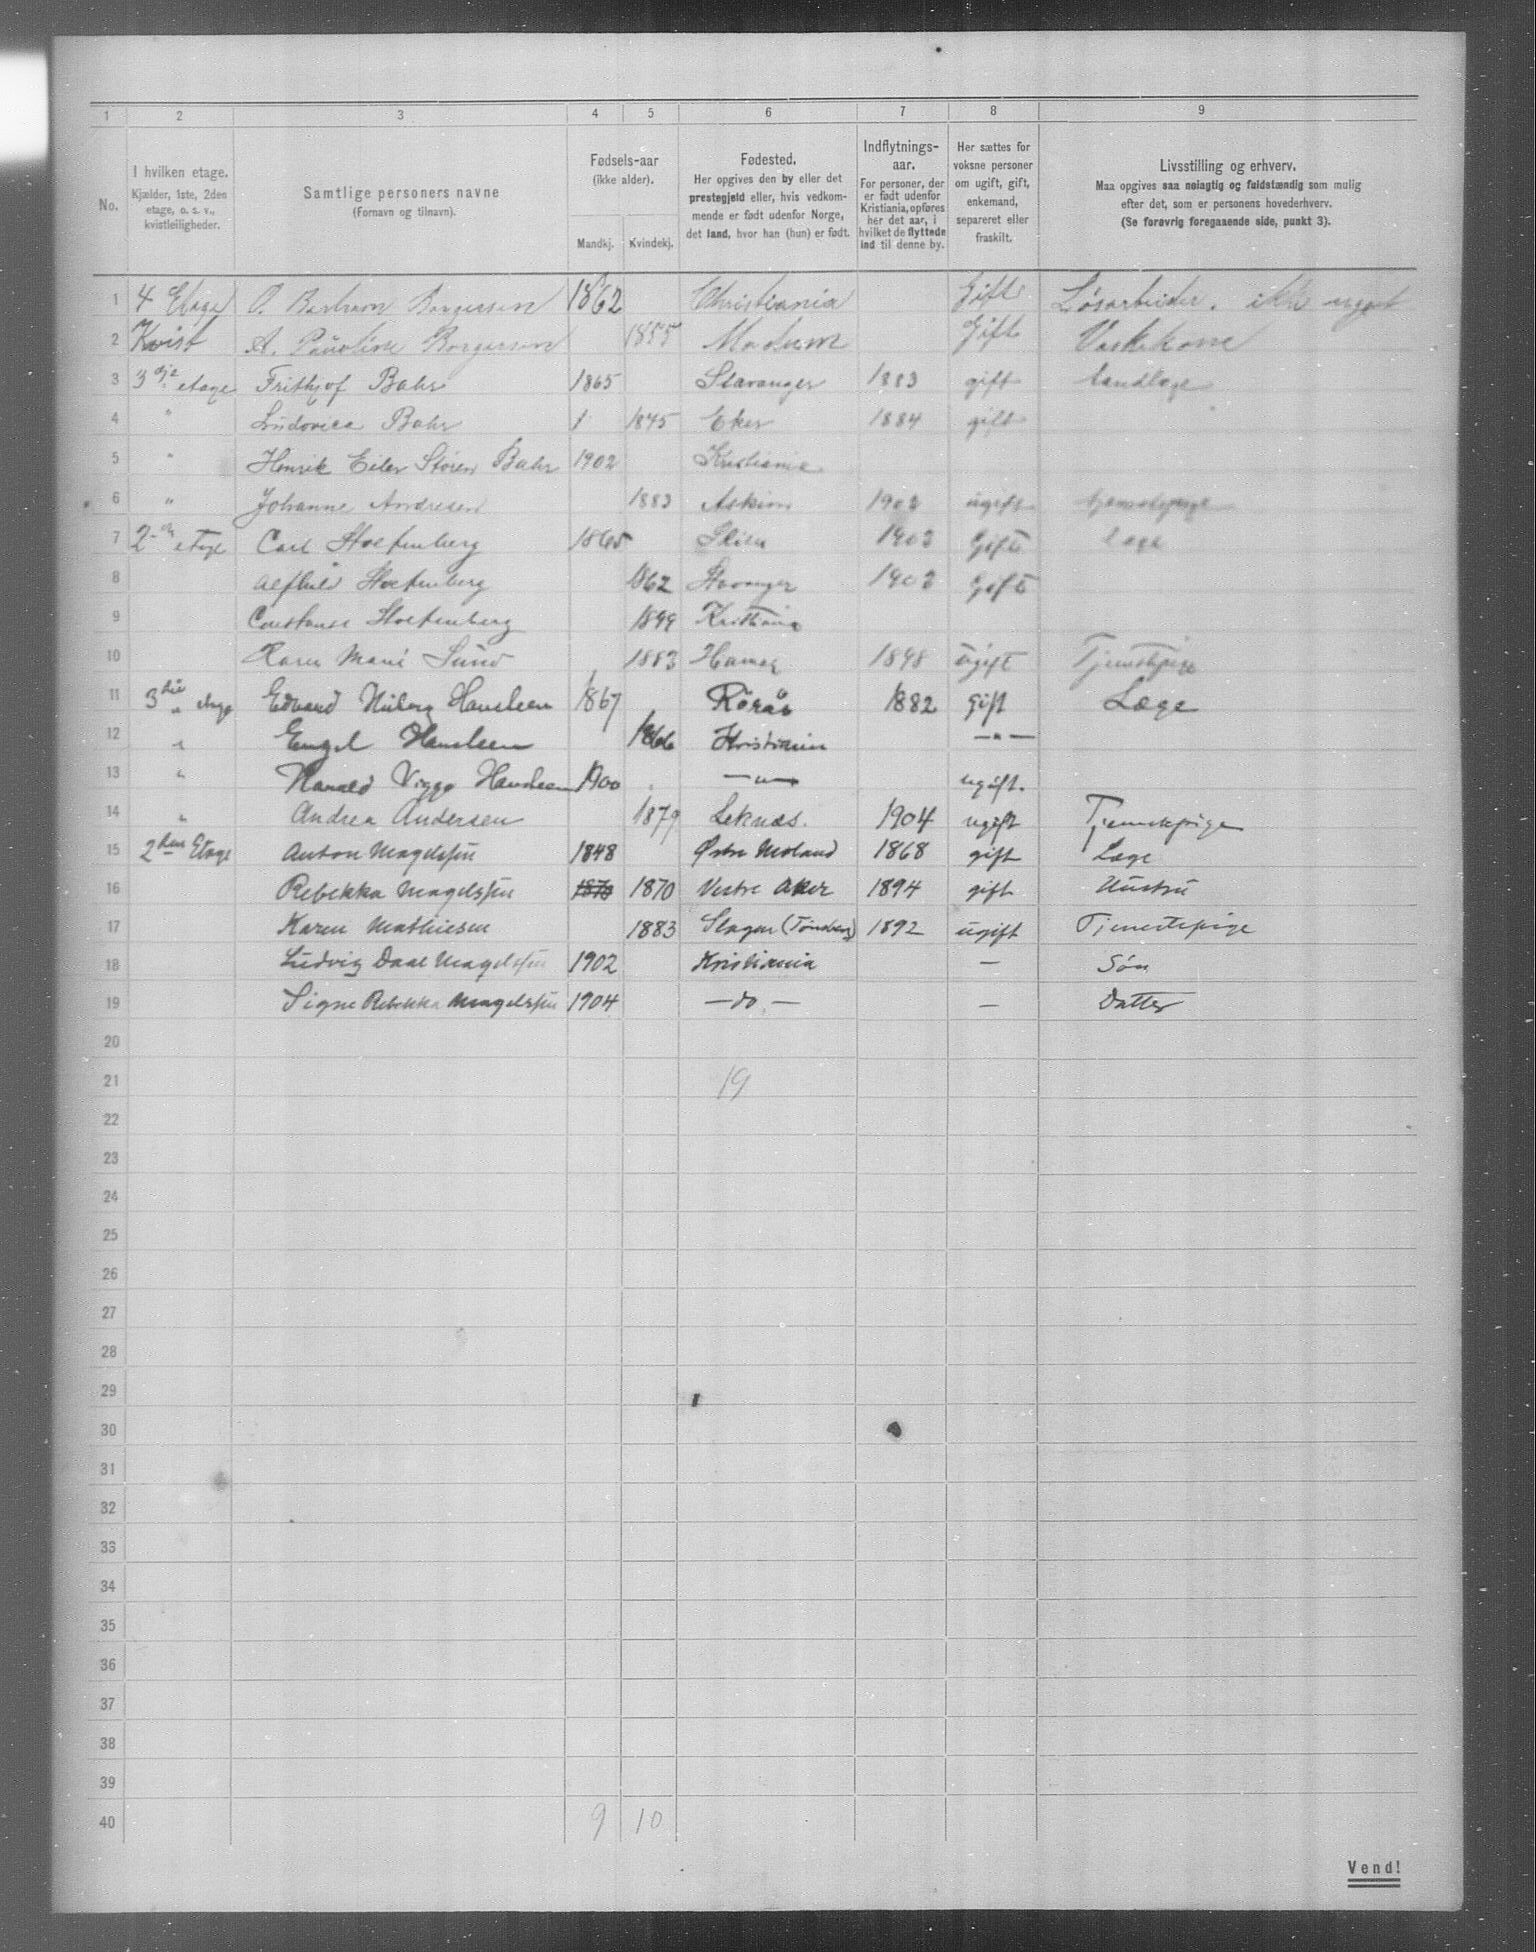 1 2 3 4 5 6 7 8 9
No.
I hvilken etage.
Kjælder, 1ste, 2den
etage, o. s. v.,
kvistleiligheder.
Samtlige personers navne
(Fornavn og tilnavn).
Fødsels-aar
(ikke alder).
Mandkj. Kvindekj.
Fødested.
Her opgives den by eller det
prestegjeld eller, hvis vedkom-
mende er født udenfor Norge,
det land, hvor han (hun) er født.
Indflytnings-
aar.
For personer, der
er født udenfor
Kristiania, opføres
her det aar, i
hvilket de flyttede
ind til denne by.
Her sættes for
voksne personer
om ugift, gift,
enkemand,
separeret eller
fraskilt.
Livsstilling og erhverv.
Maa opgives saa nøiagtig og fuldstændig som mulig
efter det, som er personens hovederhverv.
(Se forøvrig foregaaende side, punkt 3).
1 4 Etage O. Borgersen 1862 Christiania Gift Løsarbeider. ikke
2 Kvist A. Pauline Borgersen 1855 Modum Gift Vaskekone
3 3dje etage Frithjof Bahr 1865 Stavanger 1883 gift tandlæge
4 " Ludovica Bahr 1 1875 Eker 1884 gift
5 " Henrik Eiler Støren Bahr 1902 Kristiania
6 " Johanne Andresen 1883 Askim 1902 ugift
7 2den etage Carl Stoltenberg 1865 Skien 1903 Gift Læge
8 Alfhild Stoltenberg 1862 Stavanger 1903 Gift
9 Constanse Stoltenberg 1899 Kristiania
10 Karen Marie Sund 1883 Hamar 1898 ugift Tjenestpige
11 3die etage Edvard Hansteen 1867 Rörås 1882 Gift Læge
12 " Engel Hansteen 1866 Kristiania — " —
13 " Harald Viggo Hansteen 1900 — " — ugift.
14 " Andrea Andersen 1879 Leknæs. 1904 ugift Tjenestepige
15 2den Etage Anton Magelssen 1848 Østre Moland 1868 gift Læge
16 Rebekka Magelssen 1870 1870 Vestre Aker 1894 gift Hustru
17 Karen Mathiesen 1883 Slagen (Tønsberg) 1892 ugift Tjenestepige
18 Ludvig Daae Magelssen 1902 Kristiania — Søn
19 Signe Rebekka Magelssen 1904 — do — — Datter
20
21 19
22
23
24
25
26
27
28
29
30
31
32
33
34
35
36
37
38
39
40 9 10
Vend!